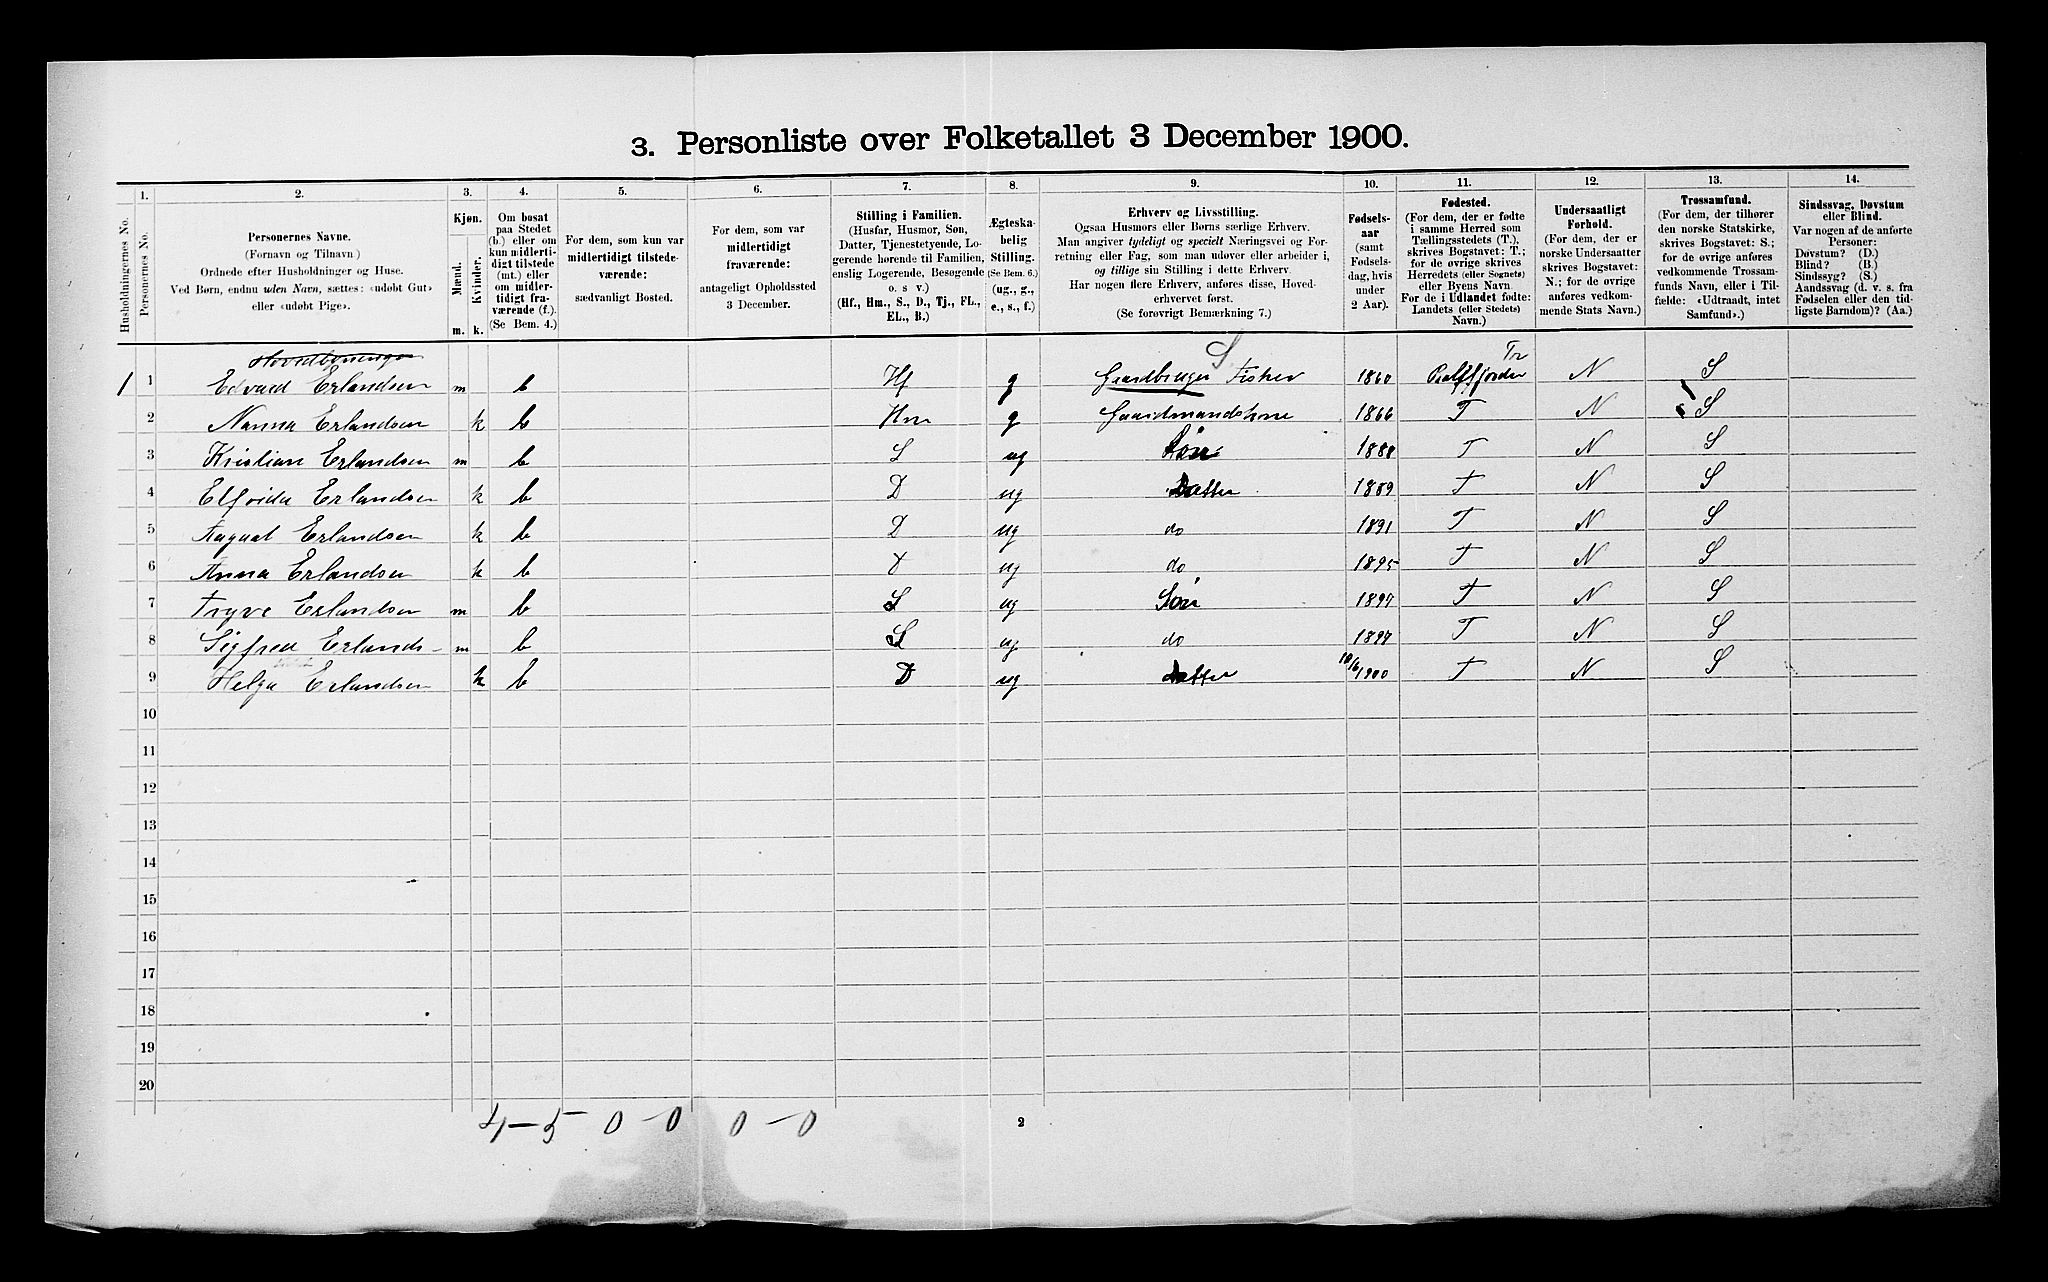 3. Personliste over Folketallet 3 December 1900.
1. 2. 3. 4. 5. 6. 7. 8. 9. 10. 11. 12. 13. 14.
Husholdningernes No.
Personernes No.
Personernes Navne.
(Fornavn og Tilnavn)
Ordnede efter Husholdninger og Huse.
Ved Børn, endnu uden Navn, sættes: «udøbt Gut»
eller «udøbt Pige».
Kjøn.
Mænd.
Kvinder.
m. k.
Om bosat
paa Stedet
(b.) eller om
kun midlerti-
digt tilstede
(mt.) eller
om midler-
tidigt fra-
værende (f.).
(Se Bem. 4.)
For dem, som kun var
midlertidigt tilstede-
værende:
sædvanligt Bosted.
For dem, som var
midlertidigt
fraværende:
antageligt Opholdssted
3 December.
Stilling i Familien.
(Husfar, Husmor, Søn,
Datter, Tjenestetyende, Lo-
gerende hørende til Familien,
enslig Logerende, Besøgende
o. s v.)
(Hf., Hm., S., D., Tj., FL.,
EL., B.)
Ægteska-
belig
Stilling.
(Se Bem. 6.)
(ug., g.,
e., s., f.)
Erhverv og Livsstilling.
Ogsaa Husmors eller Børns særlige Erhverv.
Man angiver tydeligt og specielt Næringsvei og For-
retning eller Fag, som man udover eller arbeider i,
og tillige sin Stilling i dette Erhverv.
Har nogen flere Erhverv, anføres disse, Hoved-
erhvervet først.
(Se forøvrigt Bemærkning 7.)
Fødsels-
aar
(samt
Fødsels-
dag, hvis
under
2 Aar).
Fødested.
(For dem, der er fødte
i samme Herred som
Tællingsstedets (T.),
skrives Bogstavet: T.;
for de øvrige skrives
Herredets (eller Sognets)
eller Byens Navn
For de i Udlandet fødte:
Landets (eller Stedets)
Navn.)
Undersaatligt
Forhold.
(For dem, der er
norske Undersaatter
skrives Bogstavet:
N.; for de øvrige
anføres vedkom-
mende Stats Navn.)
Trossamfund.
(For dem, der tilhører
den norske Statskirke,
skrives Bogstavet: S.;
for de øvrige anføres
vedkommende Trossam-
funds Navn, eller i Til-
fælde: «Udtraadt, intet
Samfund».)
Sindssvag, Døvstum
eller Blind.
Var nogen af de anførte
Personer:
Døvstum? (D.)
Blind? (B.)
Sindssyg? (S.)
Aandssvag (d. v. s. fra
Fødselen eller den tid-
ligste Barndom)? (Aa.)
S Tr
1 1 Edvard Erlandsen m b Hf g Gaardbruger Fisker 1860 N S
2 Nanna Erlandsen k b Hm g Gaardmandskone 1866 T N S
3 Kristian Erlandsen m b S ug Søn T N S
4 Elfrida Erlandsen k b D ug Datter 1889 T N S
5 Erlandsen k b D ug do 1891 T N S
6 Anna Erlandsen k b D ug do 1895 T N S
7 Tryve Erlandsen m b S ug Søn 1897 T N S
8 Sigfred Erlands- m b S ug do T N S
9 Helga Erlandsen k b D ug Datter 10/6 1900 T N S
10
11
12
13
14
15
16
17
18
19
20
4-5 0-0 0-0
2